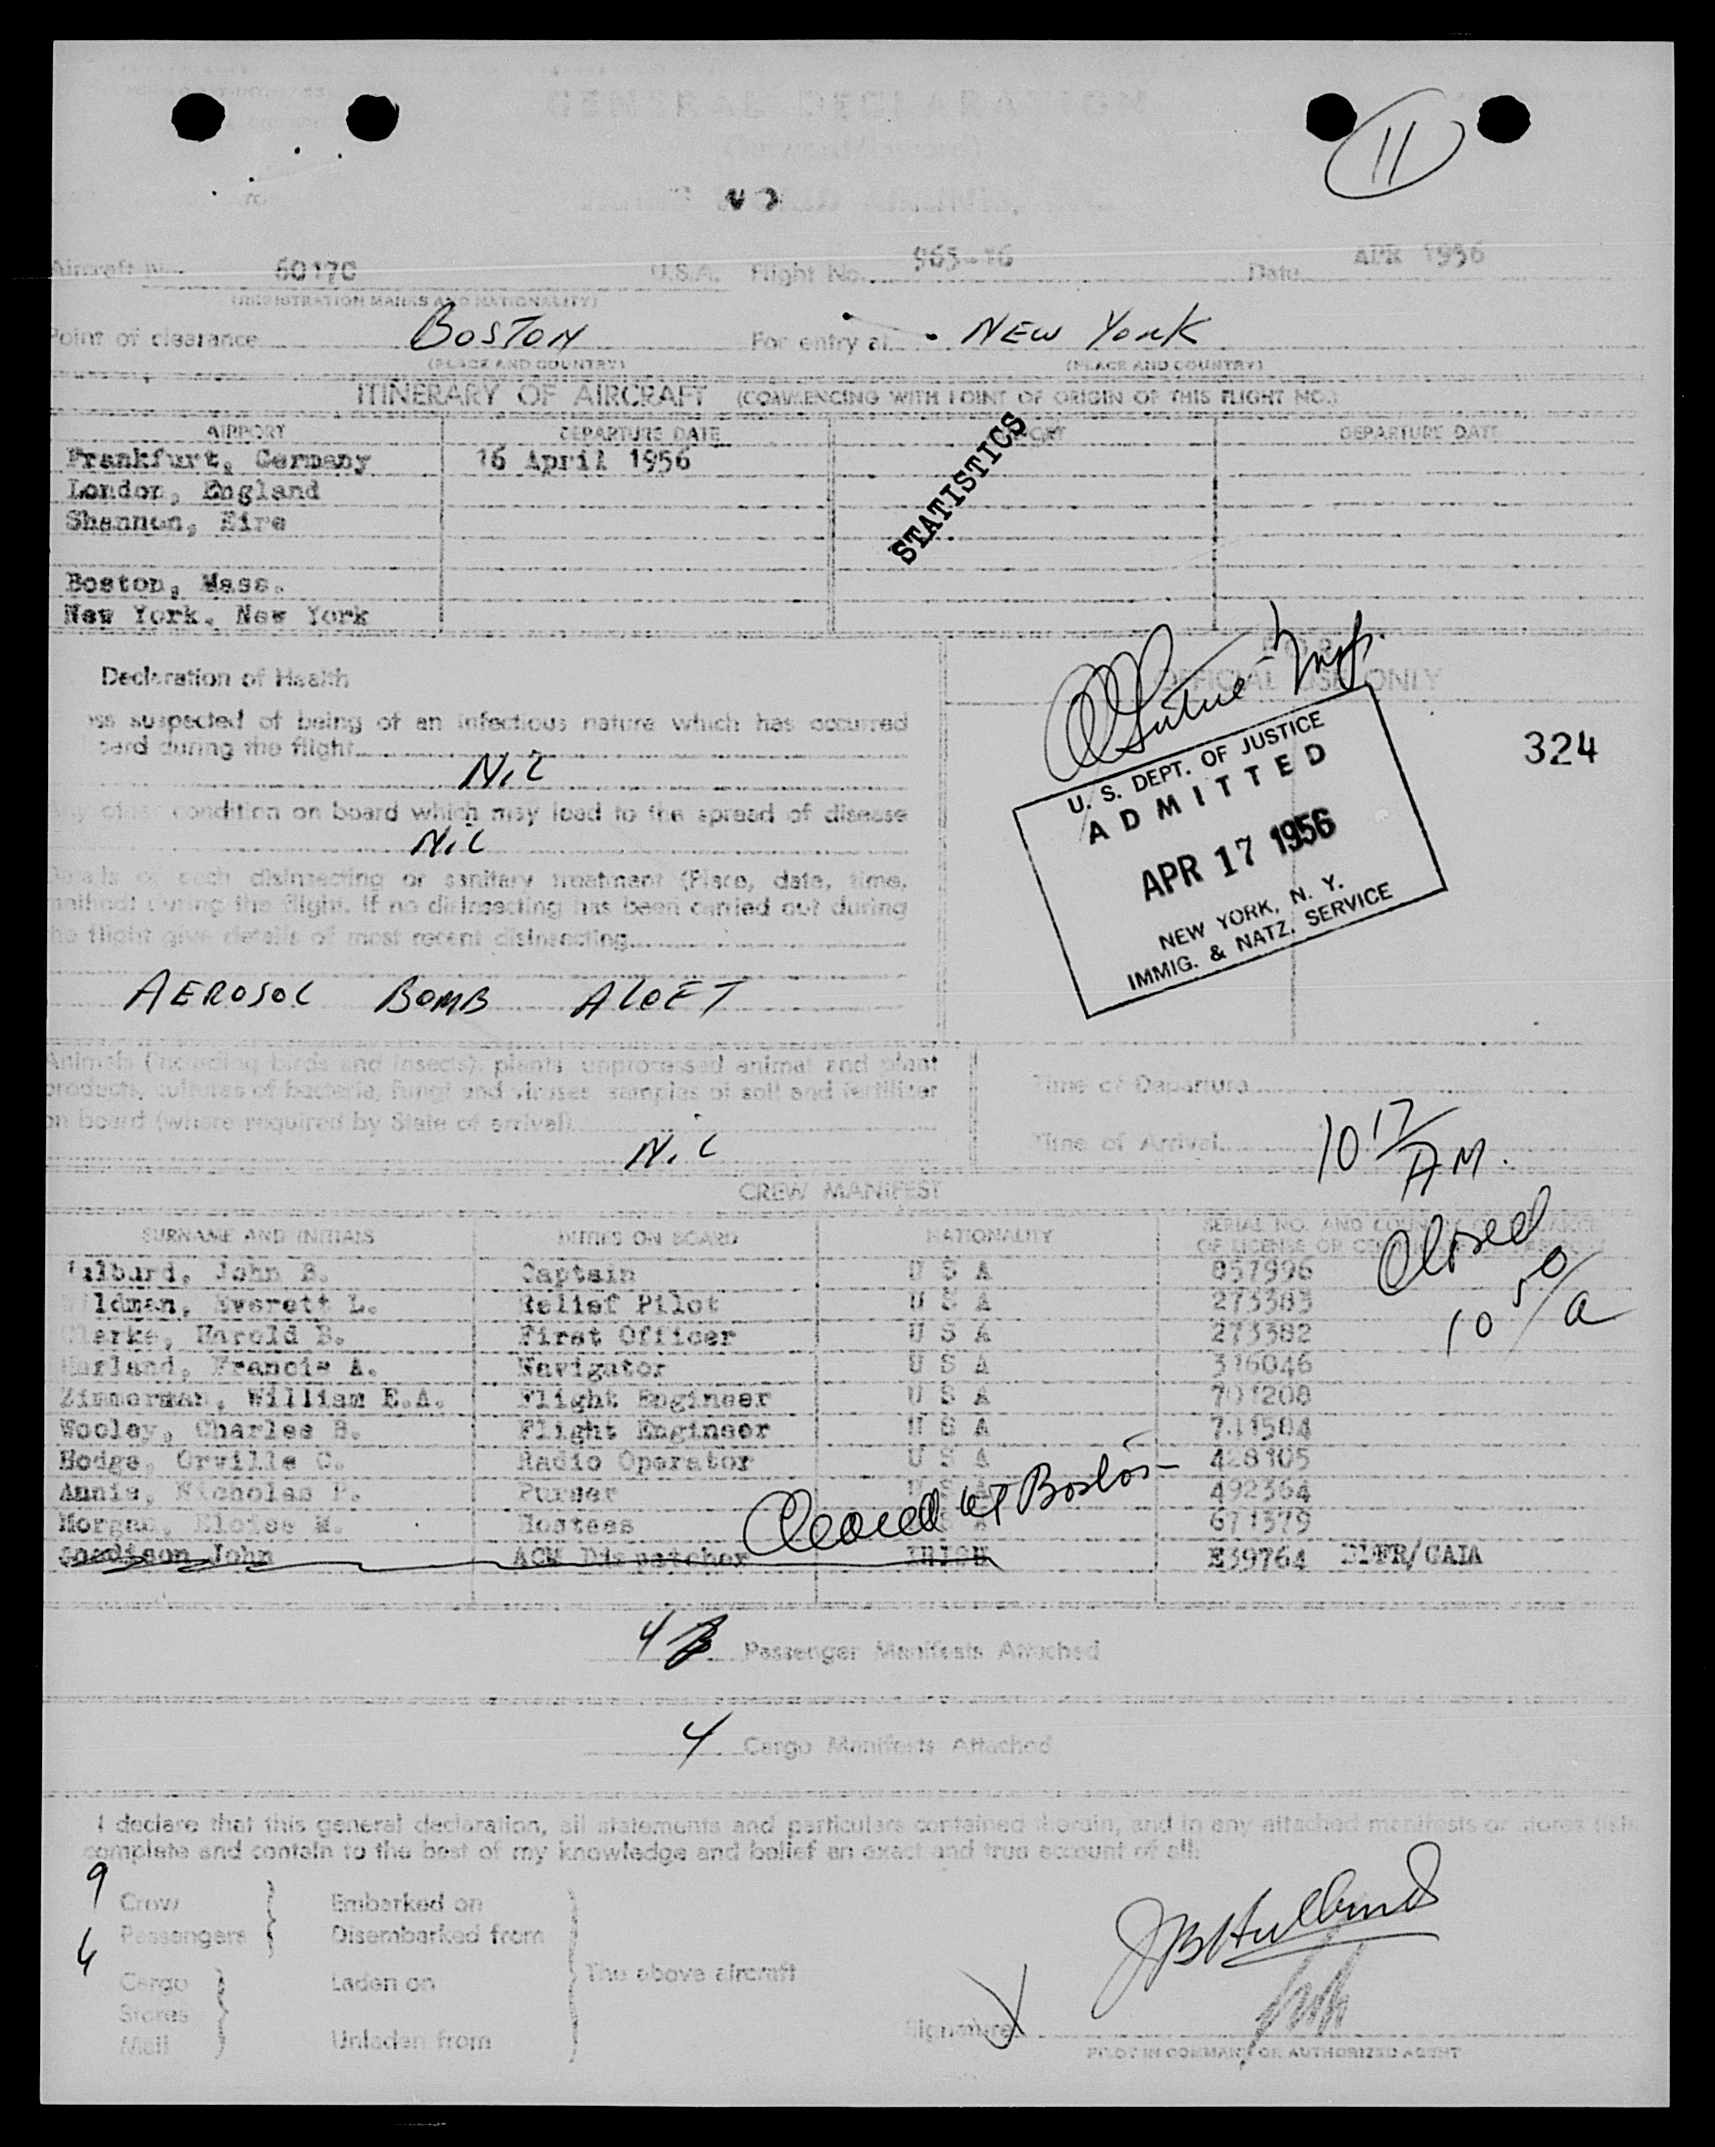 GENERAL DECLARATION
11
Aircraft No. 6017C U.S.A. Flight No. 965-16 Date APR 1956
(REGISTRATION MARKS AND NATIONALITY)
Point of clearance BOSTON For entry at NEW YORK
(PLACE AND COUNTRY) (PLACE AND COUNTRY)
ITINERARY OF AIRCRAFT (COMMENCING WITH POINT OF ORIGIN OF THIS FLIGHT NO.)
AIRPORT DEPARTURE DATE DEPARTURE DATE
Frankfurt, Germany 16 April 1956
London, England
Shannon, Eire
STATISTICS
Boston, Mass.
New York, New York
Declaration of Health
OFFICIAL USE ONLY
suspected of being of an infectious nature which has occurred
during the flight
Nil
324
U. S. DEPT. OF JUSTICE
ADMITTED
APR 17 1956
NEW YORK, N. Y.
IMMIG. & NATZ. SERVICE
Any other condition on board which may lead to the spread of disease
Nil
Details of each disinsecting or sanitary treatment (Place, date, time,
method) during the flight. If no disinsecting has been carried out during
the flight give details of most recent disinsecting
AEROSOL BOMB ALOFT
Animals (including birds and insects), plants, unprocessed animal and plant
products, cultures of bacteria, fungi and viruses, samples of soil and fertilizer
on board (where required by State of arrival)
Nil
Time of Departure
Time of Arrival 10 17/AM.
Closed
10 50/a
CREW MANIFEST
SURNAME AND INITIALS DUTIES ON BOARD NATIONALITY SERIAL NO. AND
John B. Captain U S A 857996
Everett L. Relief Pilot U S A 273383
Clarke, Harold B. First Officer U S A 273382
Harland, Francis A. Navigator U S A 316046
Zimmerman, William E.A. Flight Engineer U S A 701208
Wooley, Charles B. Flight Engineer U S A 711584
Hodge, Orville C. Radio Operator U S A 428105
Annis, Nicholas P. Purser U S A 492364
Morgan, Eloise M. Hostess 671379
Cleared at Boston
John ACM Dispatcher IRISH E39764 DLFR/GAIA
4 Passenger Manifests Attached
4 Cargo Manifests Attached
I declare that this general declaration, all statements and particulars contained therein, and in any attached manifests or stores lists
complete and contain to the best of my knowledge and belief an exact and true account of all:
9 Crew Embarked on
6 Passengers Disembarked from
Cargo Laden on The above aircraft
Stores
Mail Unladen from
Signature
PILOT IN COMMAND OR AUTHORIZED AGENT